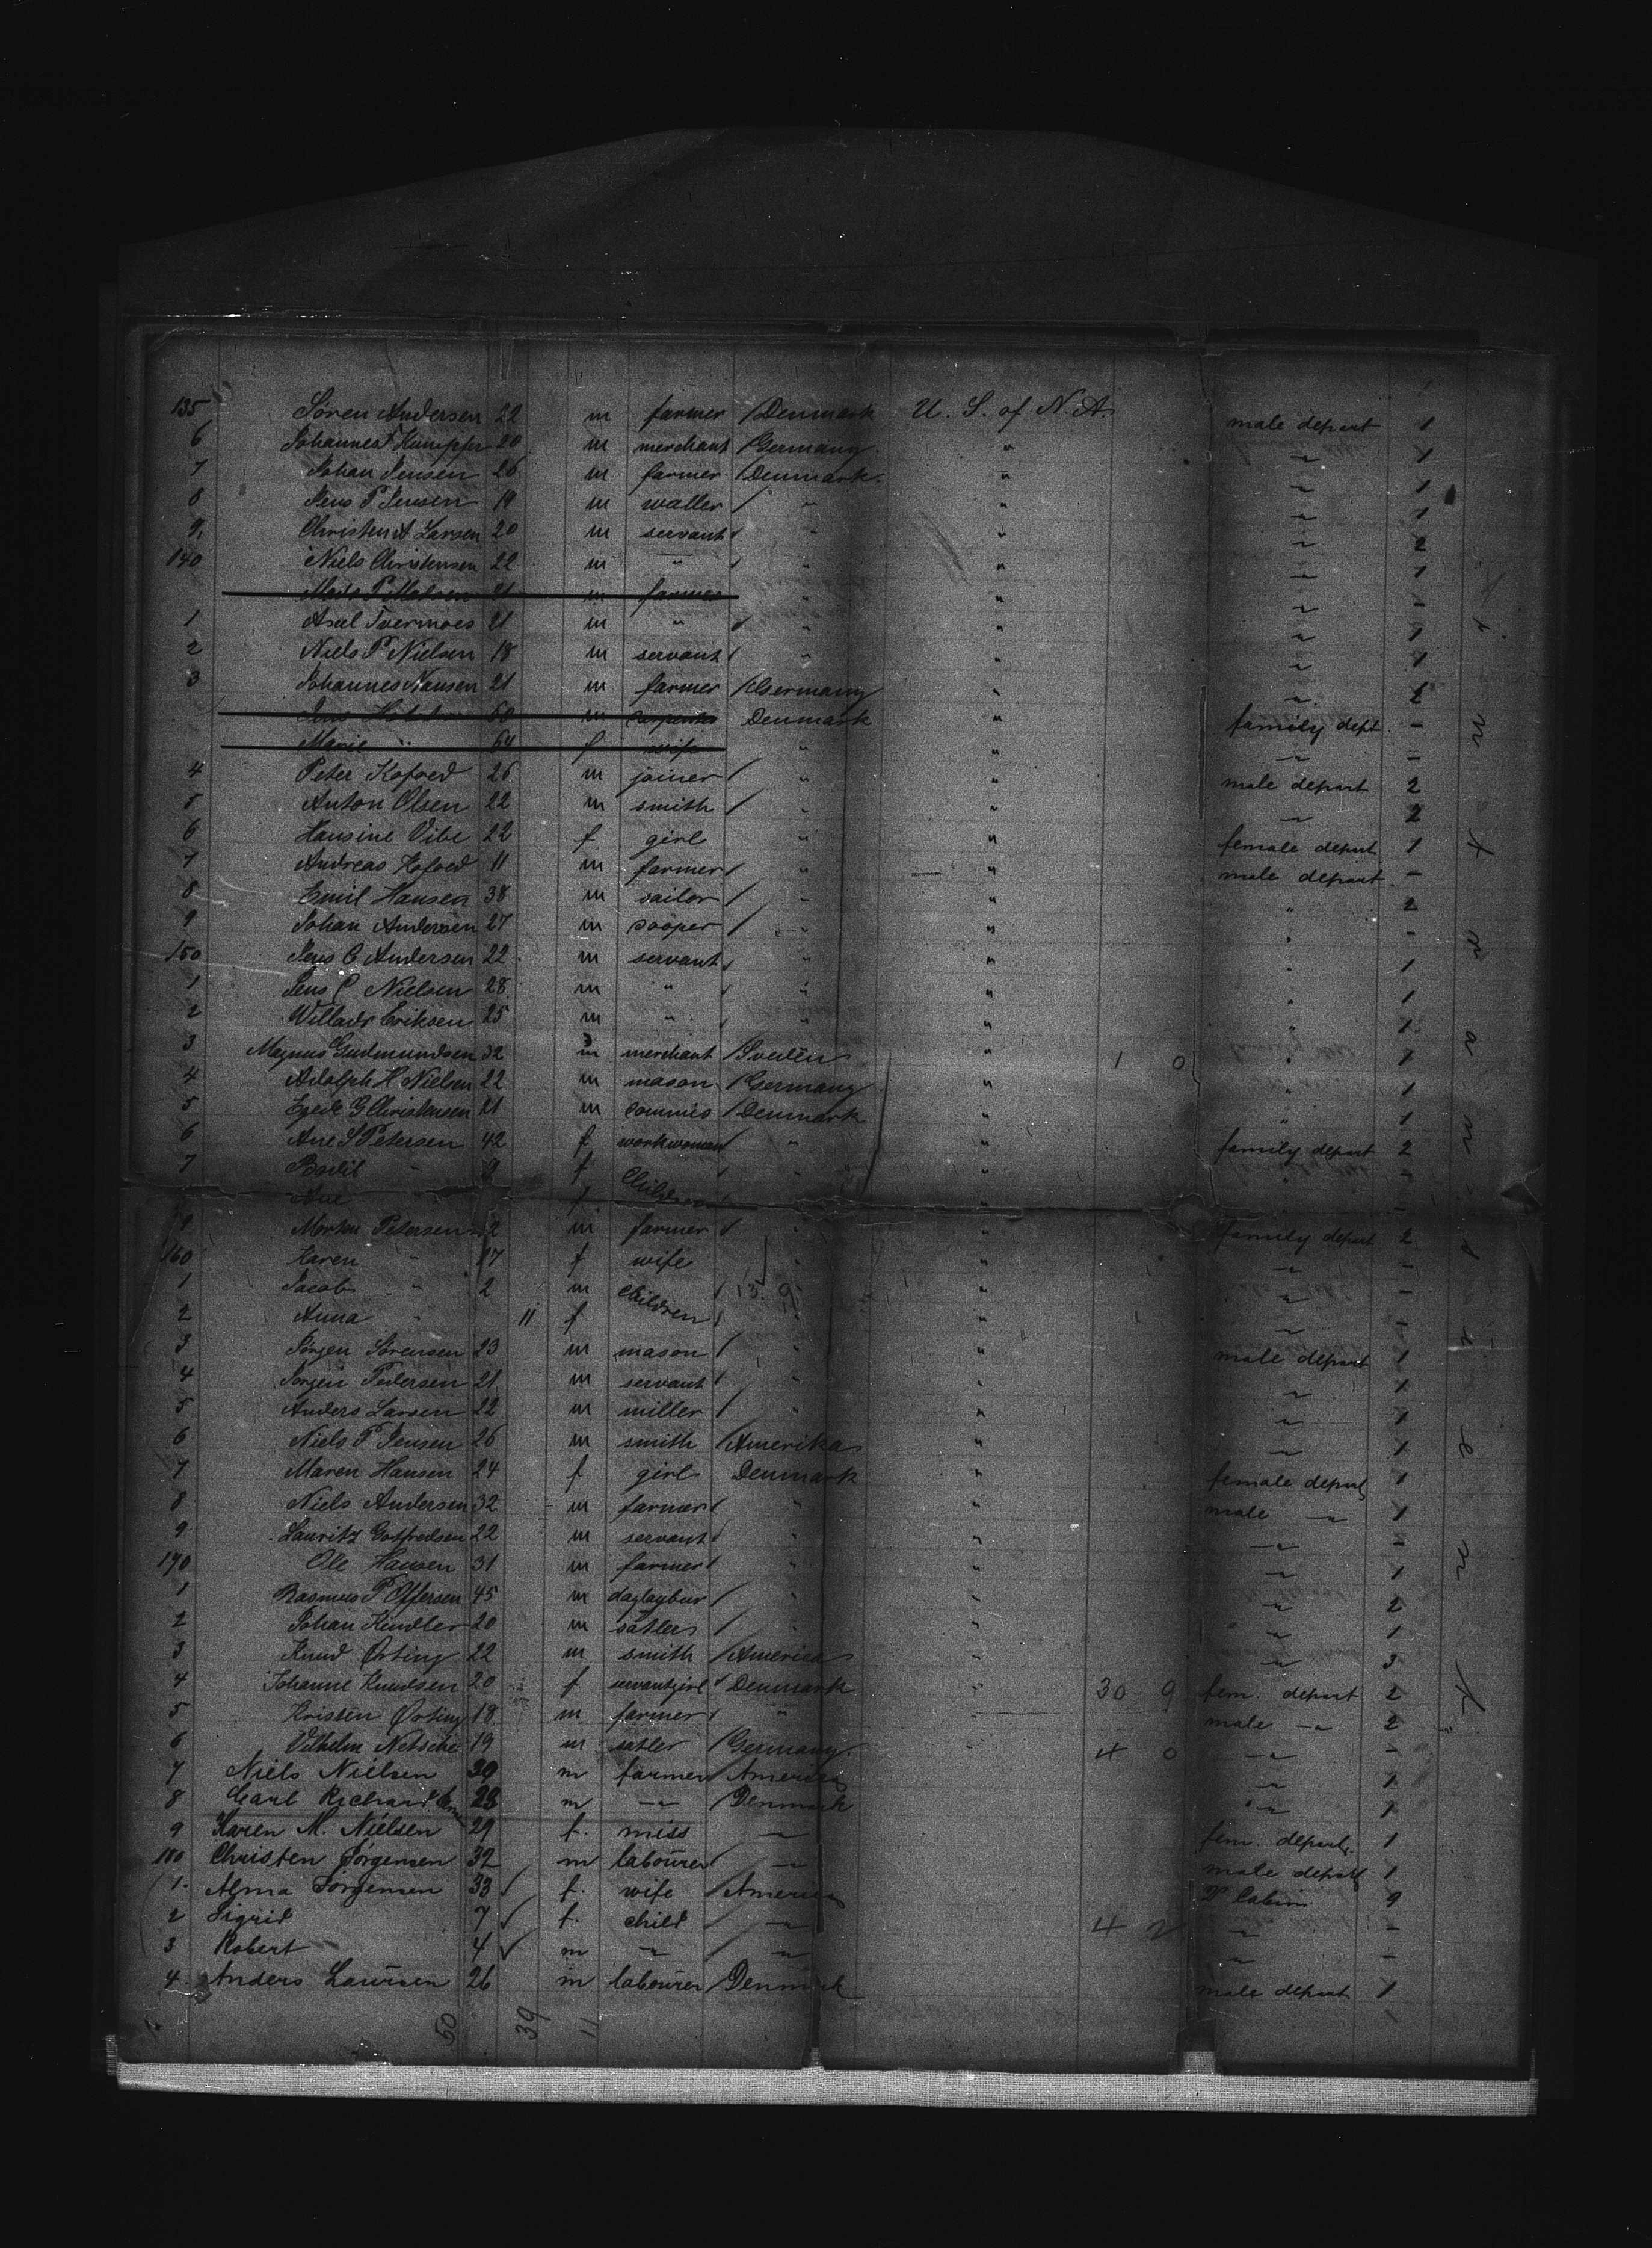 135 Sören Andersen 22 m farmer / Denmark U. S. of N. A. male depart 1
6 Johannes F Kumpfer 20 m merchant / Germany " " 1
7 Johan Jensen 26 m farmer / Denmark. " " 1
8 Jens P Jensen 19 m waller / " " " 1
9. Christen A Larsen 20 m servant / " " " 2
140 Niels Christensen 22 m " / " " " 1
Mads P Madsen 21 m farmer " " " -
1 Axel Tvermoes 21 m " / " " " 1
2 Niels P Nielsen 18 m servant / " " " 1
3 Johannes Nansen 21 m farmer / Germany " " 1
Jens 60 m carpenter Denmark " family dept. -
Marie " 64 f wife " " " -
4 Peter Kofoed 26 m joiner / " " male depart 2
5 Anton Olsen 22 m smith / " " " 2
6 Hansine Vibe 22 f girl " " female depart 1
7 Andreas Kofoed 11 m farmer / " " male depart -
8 Emil Hansen 38 m sailor / " " " 2
9 Johan Andersen 27 m cooper / " " " -
150 Jens C Andersen 22 m servant / " " " 1
1 Jens C Nielsen 28 m " / " " " 1
2 Willads Eriksen 25 m " / " " " 1
3 Magnus Gudmundsen 32 m merchant / Sveden " 1 0 " 1
4 Adolph H Nielsen 22 m mason / Germany " " 1
5 Egede G Christensen 21 m commis / Denmark " " 1
6 Ane S Petersen 42 f workwoman / " " family depart 2
7 Bodil " 9 f Children / " " " -
Ane f / " -
9 Morten Petersen m farmer / " " family depart 2
160 Karen " 27 f wife " " " -
1 Jacob " 2 m Children / 13. 9 " " -
2 Anna " 11 f / " " -
3 Jörgen Sörensen 23 m mason / " " male depart 1
4 Jörgen Pedersen 21 m servant / " " " 1
5 Anders Larsen 22 m miller / " " " 1
6 Niels P Jensen 26 m smith / Amerika " " 1
7 Maren Hansen 24 f girl Denmark " female depart 1
8 Niels Andersen 32 m farmer / " " male " 1
9 Lauritz Gotfredsen 22 m servant / " " " -
170 Ole Hansen 31 m farmer / " " " 1
1 Rasmus P Offersen 45 m / " " " 2
2 Johan Kindler 20 m satler / " " " 1
3 Knud Örting 22 m smith / America " " 3
4 Johanne Knudsen 20 f servantgirl / Denmark " 30 9 fem. depart 2
5 Kristen Örting 18 m farmer / " male " 2
6 Vilhelm Netsche 19 m satler / Germany. " 4 0 " -
7 Niels Nielsen 30 m farmer / America " 1
8 Carl Richard 23 m " / Denmark " 1
9 Karen M. Nielsen 29 f. miss " fem. depart. 1
180 Christen Jörgensen 32 m labourer / " male depart 1
1. Alma Jörgensen 33 f. wife / America Cabin 9
2 Sigrid 7 f. child / " 4 2 " -
3 Robert 4 m " / " " -
4. Anders Laursen 26 m labourer / Denmark male depart 1
50 39 11